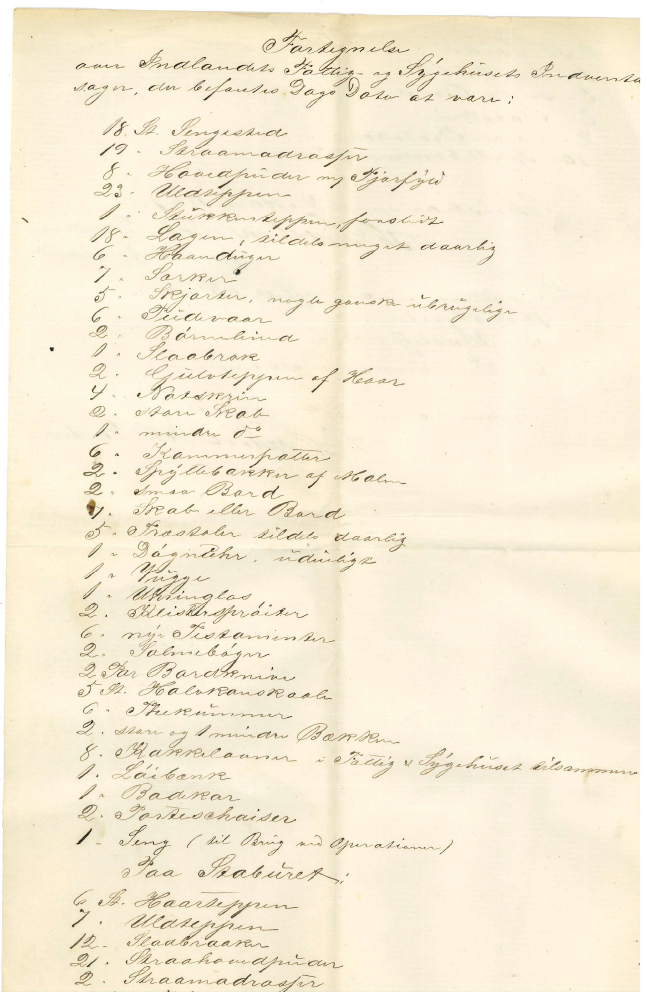 Fortegnelse
over Indlandets Fattig- og Sÿgehusets Indventa
sager, der befantes Dags Dato at være:
18 St. Sengested
19 - Straamadrasser
8 - Hovedpuder ny Fjærfÿld
23 - Uldteppen
1 - Stükketeppen, forslidt
18 - Lagen, tildels meget daarlig
6 - Haanduger
7 - Særker
5 - Skjorter, nogle ganske ubrugelige
6 - Püdevaar
2 - Børnelind
1 - Slaabrok
2 - Gulvteppen af Haar
4 - Natskrin
2 - store Skab
1 - mindre do
6 - Kammerpotter
2 - Spÿttebakker af Malm
2 - smaa Bord
7 - Skab eller Bord
5 - Træstoler tildels daarlig
1 - Døgnuhr, udueligt
1 - Vügge
1 - Uringlas
2 - Klistersprøiter
6 - nÿe Testamenter
2 - Salmebøger
2 Par Bordknive
5 St. Halvkandskaale
6 - Thekummer
2 - store og 1 mindre Bækken
8 - Kakkelovner i Fattig & Sÿgehuset tilsammen
1 - Løibænk
1 - Badekar
2 - Porteschaiser
1 - Seng (til Brug ved Operationer)
Paa Staburet:
6 St. Haarteppen
7 - Uldteppen
12 - Slaabrokker
21 - Straahovedpuder
2 - Straamadrasser